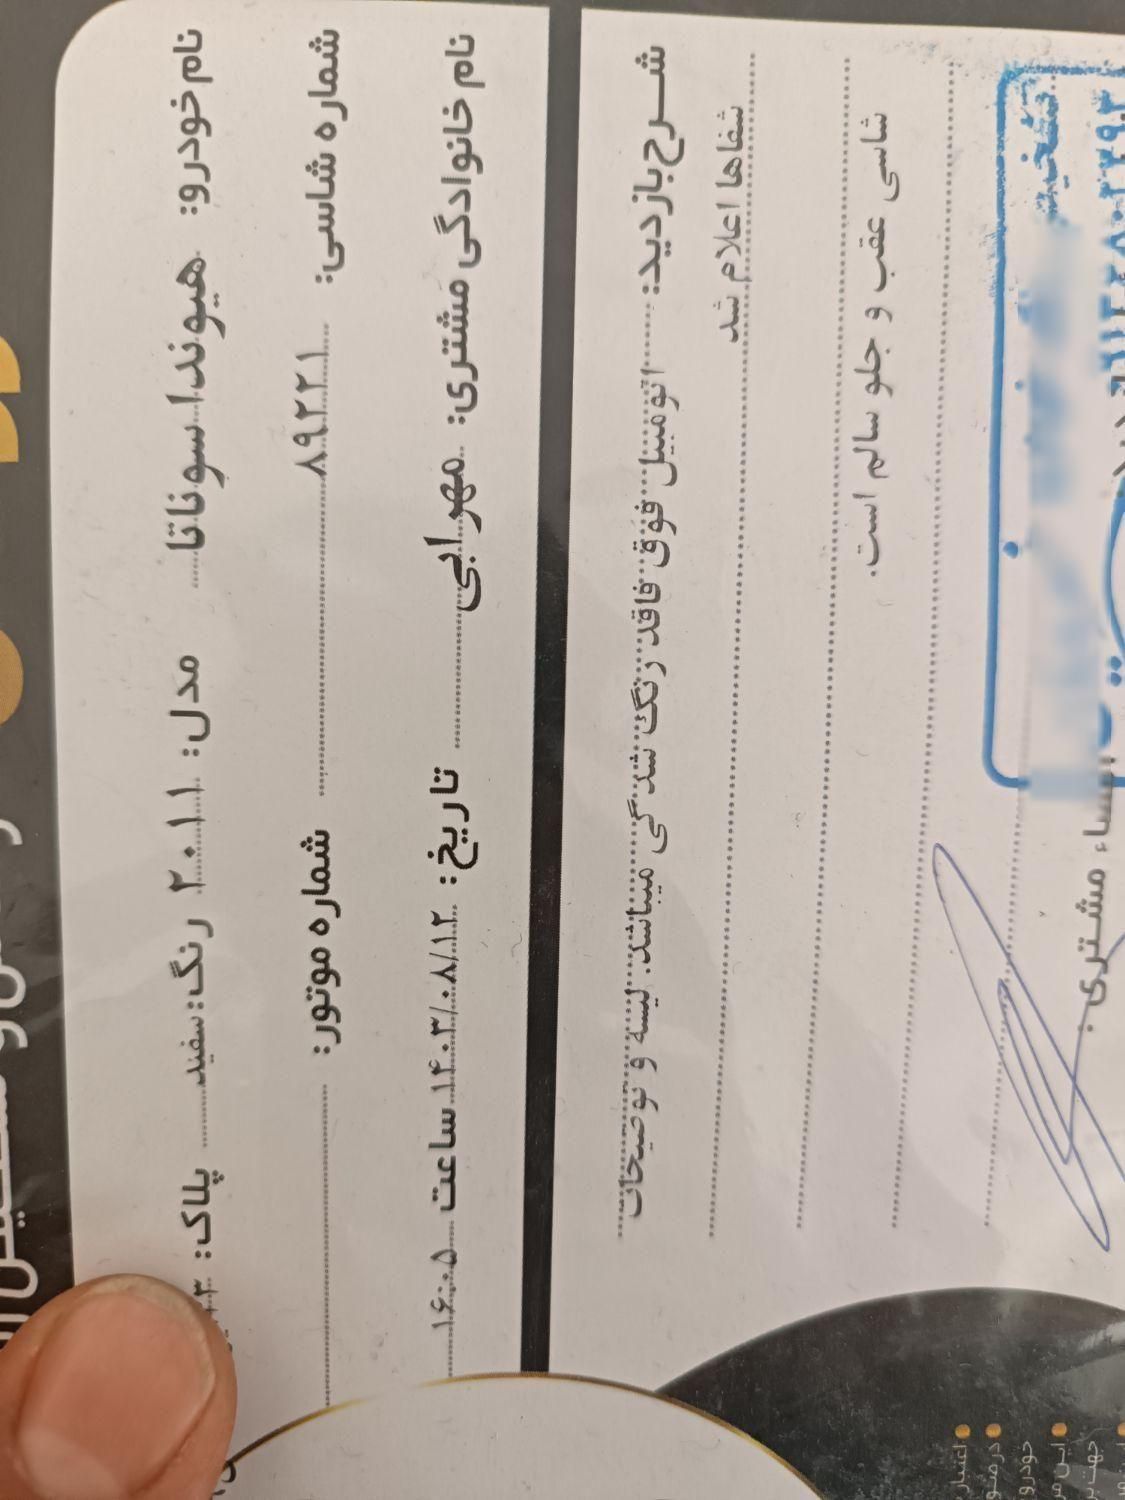 نام خودرو: هیوندا سوناتا مدل: ۲۰۱۱ رنگ: سفید پلاک:
شماره شاسی: ۸۹۲۲۱ شماره موتور:
نام خانوادگی مشتری: مهرابی تاریخ: ۱۴۰۳/۰۸/۱۲ ساعت ۱۶:۰۵
شرح بازدید: اتومبیل فوق فاقد رنگ شدگی میباشد. لیسه و توضیحات
شفاها اعلام شد
شاسی عقب و جلو سالم است.
مشتری:
اعتبار
خودرو
این مر
جهت بر